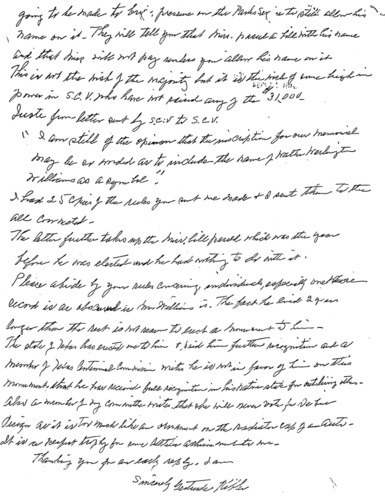 going to be made to by . pressure on the to still allow his
name on it. They will tell you that Miss. passed a bill with his name
and that Miss will not pay unless you allow his name on it
This is not the wish of the majority but it is the wish of some high in
power in S.C.V. who have not paid any of the 31,000
Quote from letter sent by SCV to S.C.V.
"I am still of the opinion that the inscription for our memorial
may be so worded as to include the name of Walter Washington
Williams as a symbol".
I had 25 copies of the rules you sent me made & I sent them to the
all
The letter further takes up the Miss. bill passed which was the year
before he was elected and he had nothing to do with it.
Please abide by your rules concerning individuals, especially one whose
record is as as Mr Williams is. The fact he lived 2 years
longer than the rest is not reason to erect a monument to him -
The state of Texas has erected one to him & paid him further recognition and a
member of Texas Centennial Commission writes he is not in favor of him on this
monument, that he has received full recognition in his native state for outliving others.
Also a member of my committee writes that she will never vote for De Lue
Design as it is too much like an ornament on the radiator cap of an auto -
It is a trophy for some athletic achievement to me -
Thanking you for an early reply. I am
Sincerely Gertrude